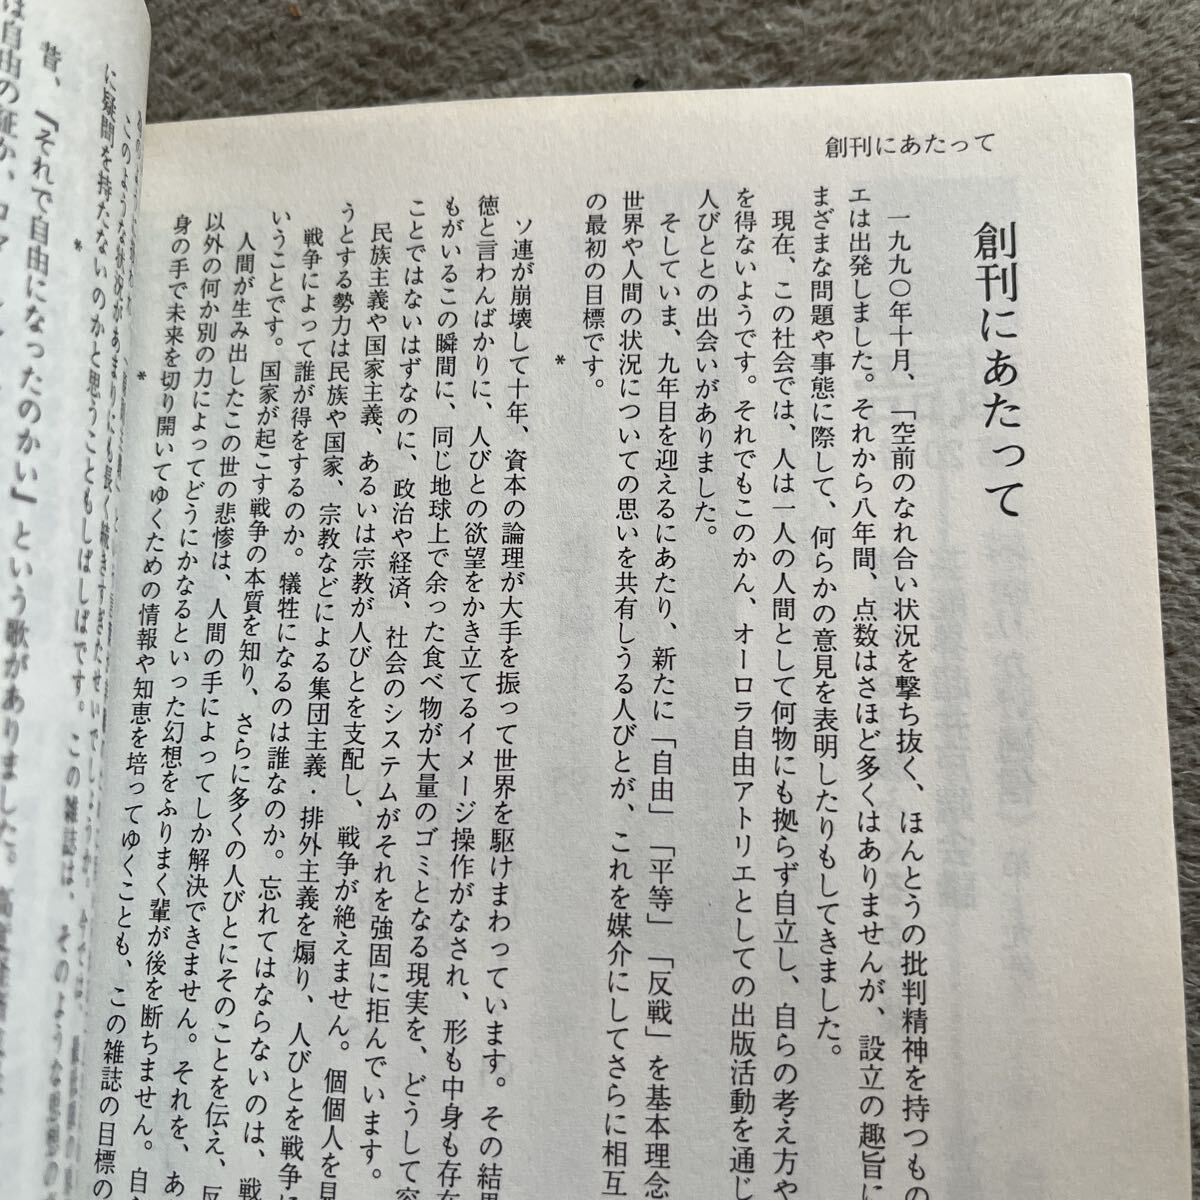 創刊にあたって
創刊にあたって
一九九〇年十月、「空前のなれ合い状況を撃ち抜く、ほんとうの批判精神を持つもの
エは出発しました。それから八年間、点数はさほど多くはありませんが、設立の趣旨に
まざまな問題や事態に際して、何らかの意見を表明したりもしてきました。
現在、この社会では、人は一人の人間として何物にも拠らず自立し、自らの考え方や
を得ないようです。それでもこのかん、オーロラ自由アトリエとしての出版活動を通じ
人びととの出会いがありました。
そしていま、九年目を迎えるにあたり、新たに「自由」「平等」「反戦」を基本理念
世界や人間の状況についての思いを共有しうる人びとが、これを媒介にしてさらに相互
の最初の目標です。
*
ソ連が崩壊して十年、資本の論理が大手を振って世界を駆けまわっています。その結果
徳と言わんばかりに、人びとの欲望をかき立てるイメージ操作がなされ、形も中身も存在
もがいるこの瞬間に、同じ地球上で余った食べ物が大量のゴミとなる現実を、どうして容
ことではないはずなのに、政治や経済、社会のシステムがそれを強固に拒んでいます。
民族主義や国家主義、あるいは宗教が人びとを支配し、戦争が絶えません。個個人を見
うとする勢力は民族や国家、宗教などによる集団主義・排外主義を煽り、人びとを戦争に
戦争によって誰が得をするのか。犠牲になるのは誰なのか。忘れてはならないのは、戦
いうことです。国家が起こす戦争の本質を知り、さらに多くの人びとにそのことを伝え、反
人間が生み出したこの世の悲惨は、人間の手によってしか解決できません。それを、あ
以外の何か別の力によってどうにかなるといった幻想をふりまく輩が後を断ちません。自
身の手で未来を切り開いてゆくための情報や知恵を培ってゆくことも、この雑誌の目標の
*
このような状況があまりにも長く続きすぎたせいでしょうか。
に疑問を持たないのかと思うこともしばしばです。この雑誌は、そのような思想の
*
昔、「それで自由になったのかい」という歌がありました。
は自由の証か、